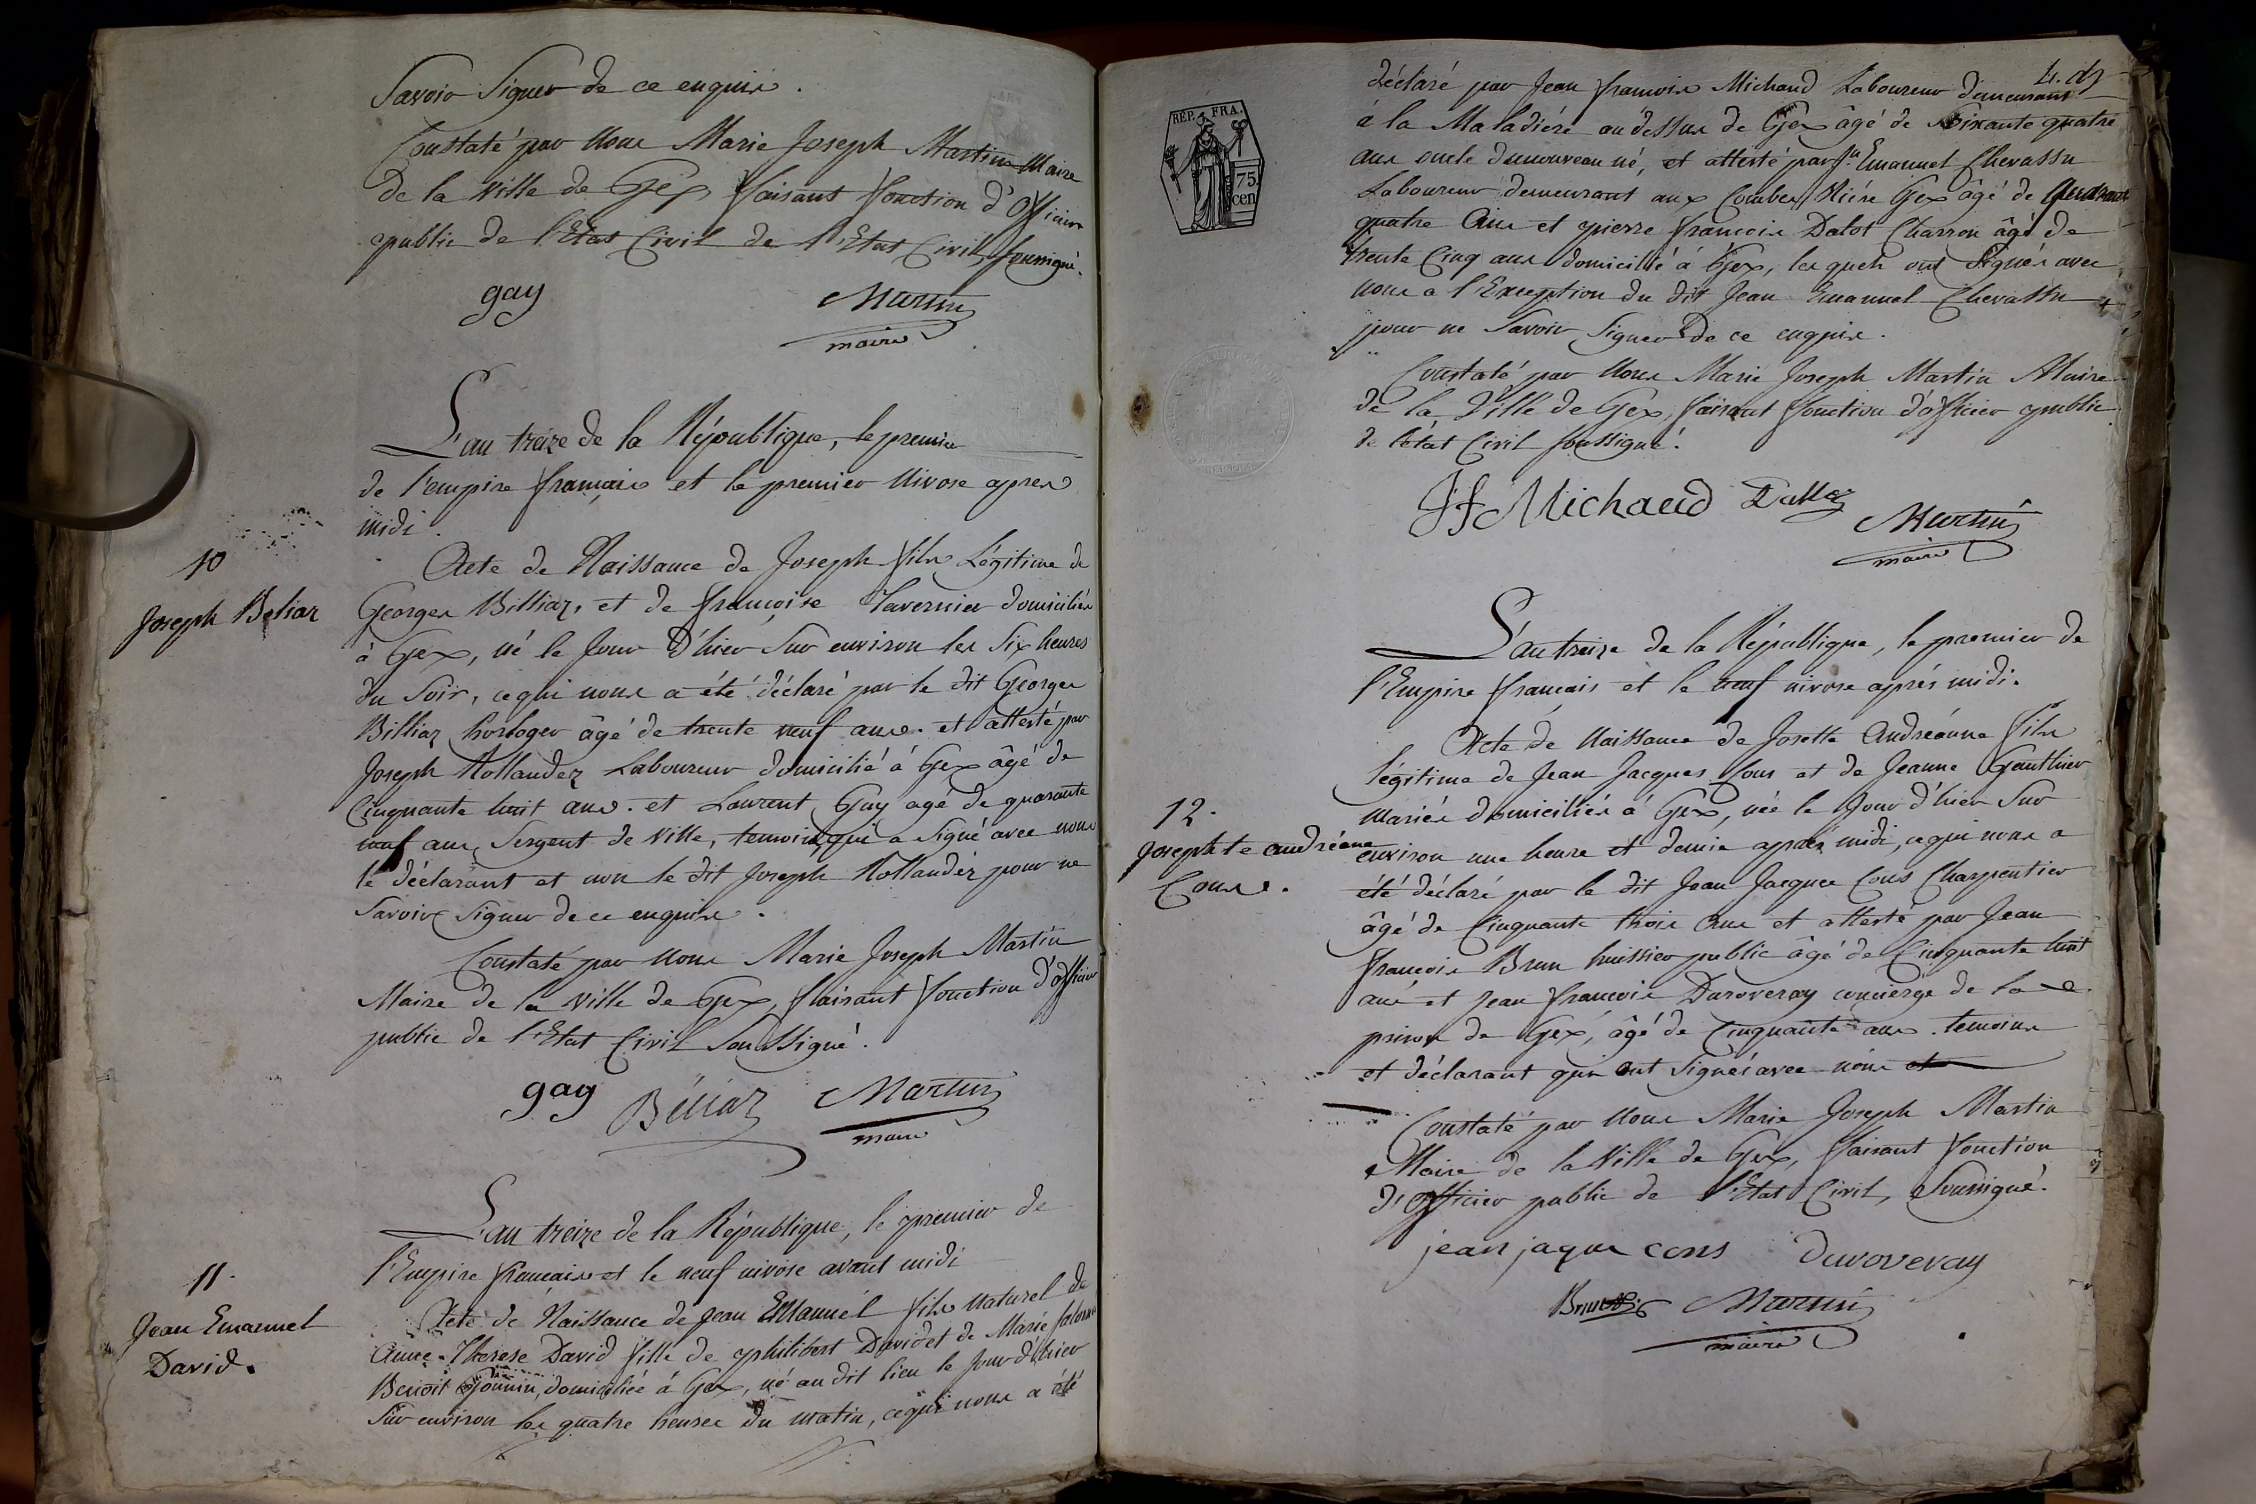 Savoir Signer de ce enquis.
Constaté par Nous Marie Joseph Martin Maire
de la Ville de Gex faisant fonction d'Officier
public de l'Etat Civil de l'Etat Civil soussigné.
gay
Martin
maire
L'an treize de la République, le premier
de l'empire français et le premier Nivose apres
midi.
10
Joseph Beliaz
Acte de Naissance de Joseph fils Légitime de
Georges Billiaz, et de françoise Tavernier domiciliés
à Gex, né le Jour d'hier Sur environ les Six heures
du Soir, ce qui nous a été déclaré par le dit George
Billiaz horloger âgé de trente neuf ans. et attesté par
Joseph Hollandez Laboureur domicilié à Gex âgé de
Cinquante huit ans. et Laurent Gay agé de quarante
neuf ans, Sergent de Ville, temoins, qui a Signé avec nous
le déclarant et non le dit Joseph Hollandez pour ne
Savoir Signer de ce enquis.
Constaté par Nous Marie Joseph Martin
Maire de la Ville de Gex, faisant fonction d'officier
public de l'Etat Civil Soussigné.
gay
Béliaz
Martin
maire
L'an treize de la République, le premier de
l'Empire français et le neuf nivose avant midi
11.
Jean Emanuel
David.
Acte de Naissance de Jean Emanuel fils Naturel de
Anne-Therese David fille de philibert David et de Marie
Benoit Gonnin, domiciliée à Gex, né au dit lieu le Jour d'hier
Sur environ les quatre heures du matin, ce qui nous a été
RÉP. FRA.
75
cen
déclaré par Jean françois Michaud Laboureur demeurant
à la Maladière au dessus de Gex âgé de Soixante quatre
ans oncle du nouveau né, et attesté par Jn Emanuel Chevassu
Laboureur demeurant aux Combes Rière Gex âgé de
quatre Ans et pierre françois Dalot Charron âgé de
trente Cinq ans domicilié à Gex, lesquels ont Signés avec
nous a l'Exception du dit Jean Emanuel Chevassu
pour ne Savoir Signer de ce enquis.
Constaté par Nous Marie Joseph Martin Maire
de la Ville de Gex, faisant fonction d'officier public
de l'état Civil soussigné.
JfMichaud
Martin
maire
L'an treize de la République, le premier de
l'Empire français et le neuf nivose après midi.
12.
Josephte andréane
Cons.
Acte de Naissance de Josette Andréanne fille
légitime de Jean Jacques Cons et de Jeanne Gauthier
mariés domiciliés à Gex, née le Jour d'hier Sur
environ une heure et demie après midi, ce qui nous a
été déclaré par le dit Jean Jacques Cons Charpentier
âgé de Cinquante trois Ans et attesté par Jean
françois Brun huissier public âgé de Cinquante huit
ans et Jean françois Duroveray concierge de la
prison de Gex, âgé de Cinquante ans. temoins
et déclarant qui ont Signés avec nous et
Constaté par Nous Marie Joseph Martin
Maire de la Ville de Gex, faisant fonction
d'Officier public de l'Etat Civil, Soussigné.
jean jaque cons
Duroveray
Brun
Martin
maire